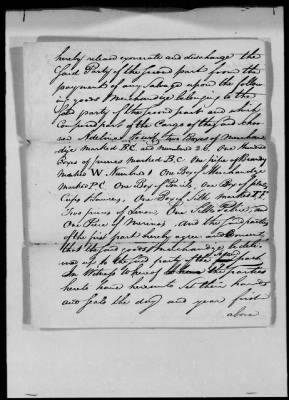 hereby release exonerate and discharge the
Said Party of the second part from the
payment of any Salvage upon the follow
ing goods & Merchandize belonging to the
said party of the second part and which
composed part of the Cargo of the said
Adeline To wit, two Boxes of Merchan
dize Marked B.C. and Numbered 2 6. One Hundred
Boxes of prunes marked B.C. One pipe of Brandy
Marked W Number 1 One Box of Merchandize
Marked P.C. One Box of One Box of
Cups One Box of Silk marked
Two pieces of One
One Piece of Merino, and the said parties
of the first part hereby agree and
that the said goods & Merchandize be deliv
up to the said party of the second part
In Witness Whereof the parties
hereto have hereunto Set their hands
and Seals the day and year first
above